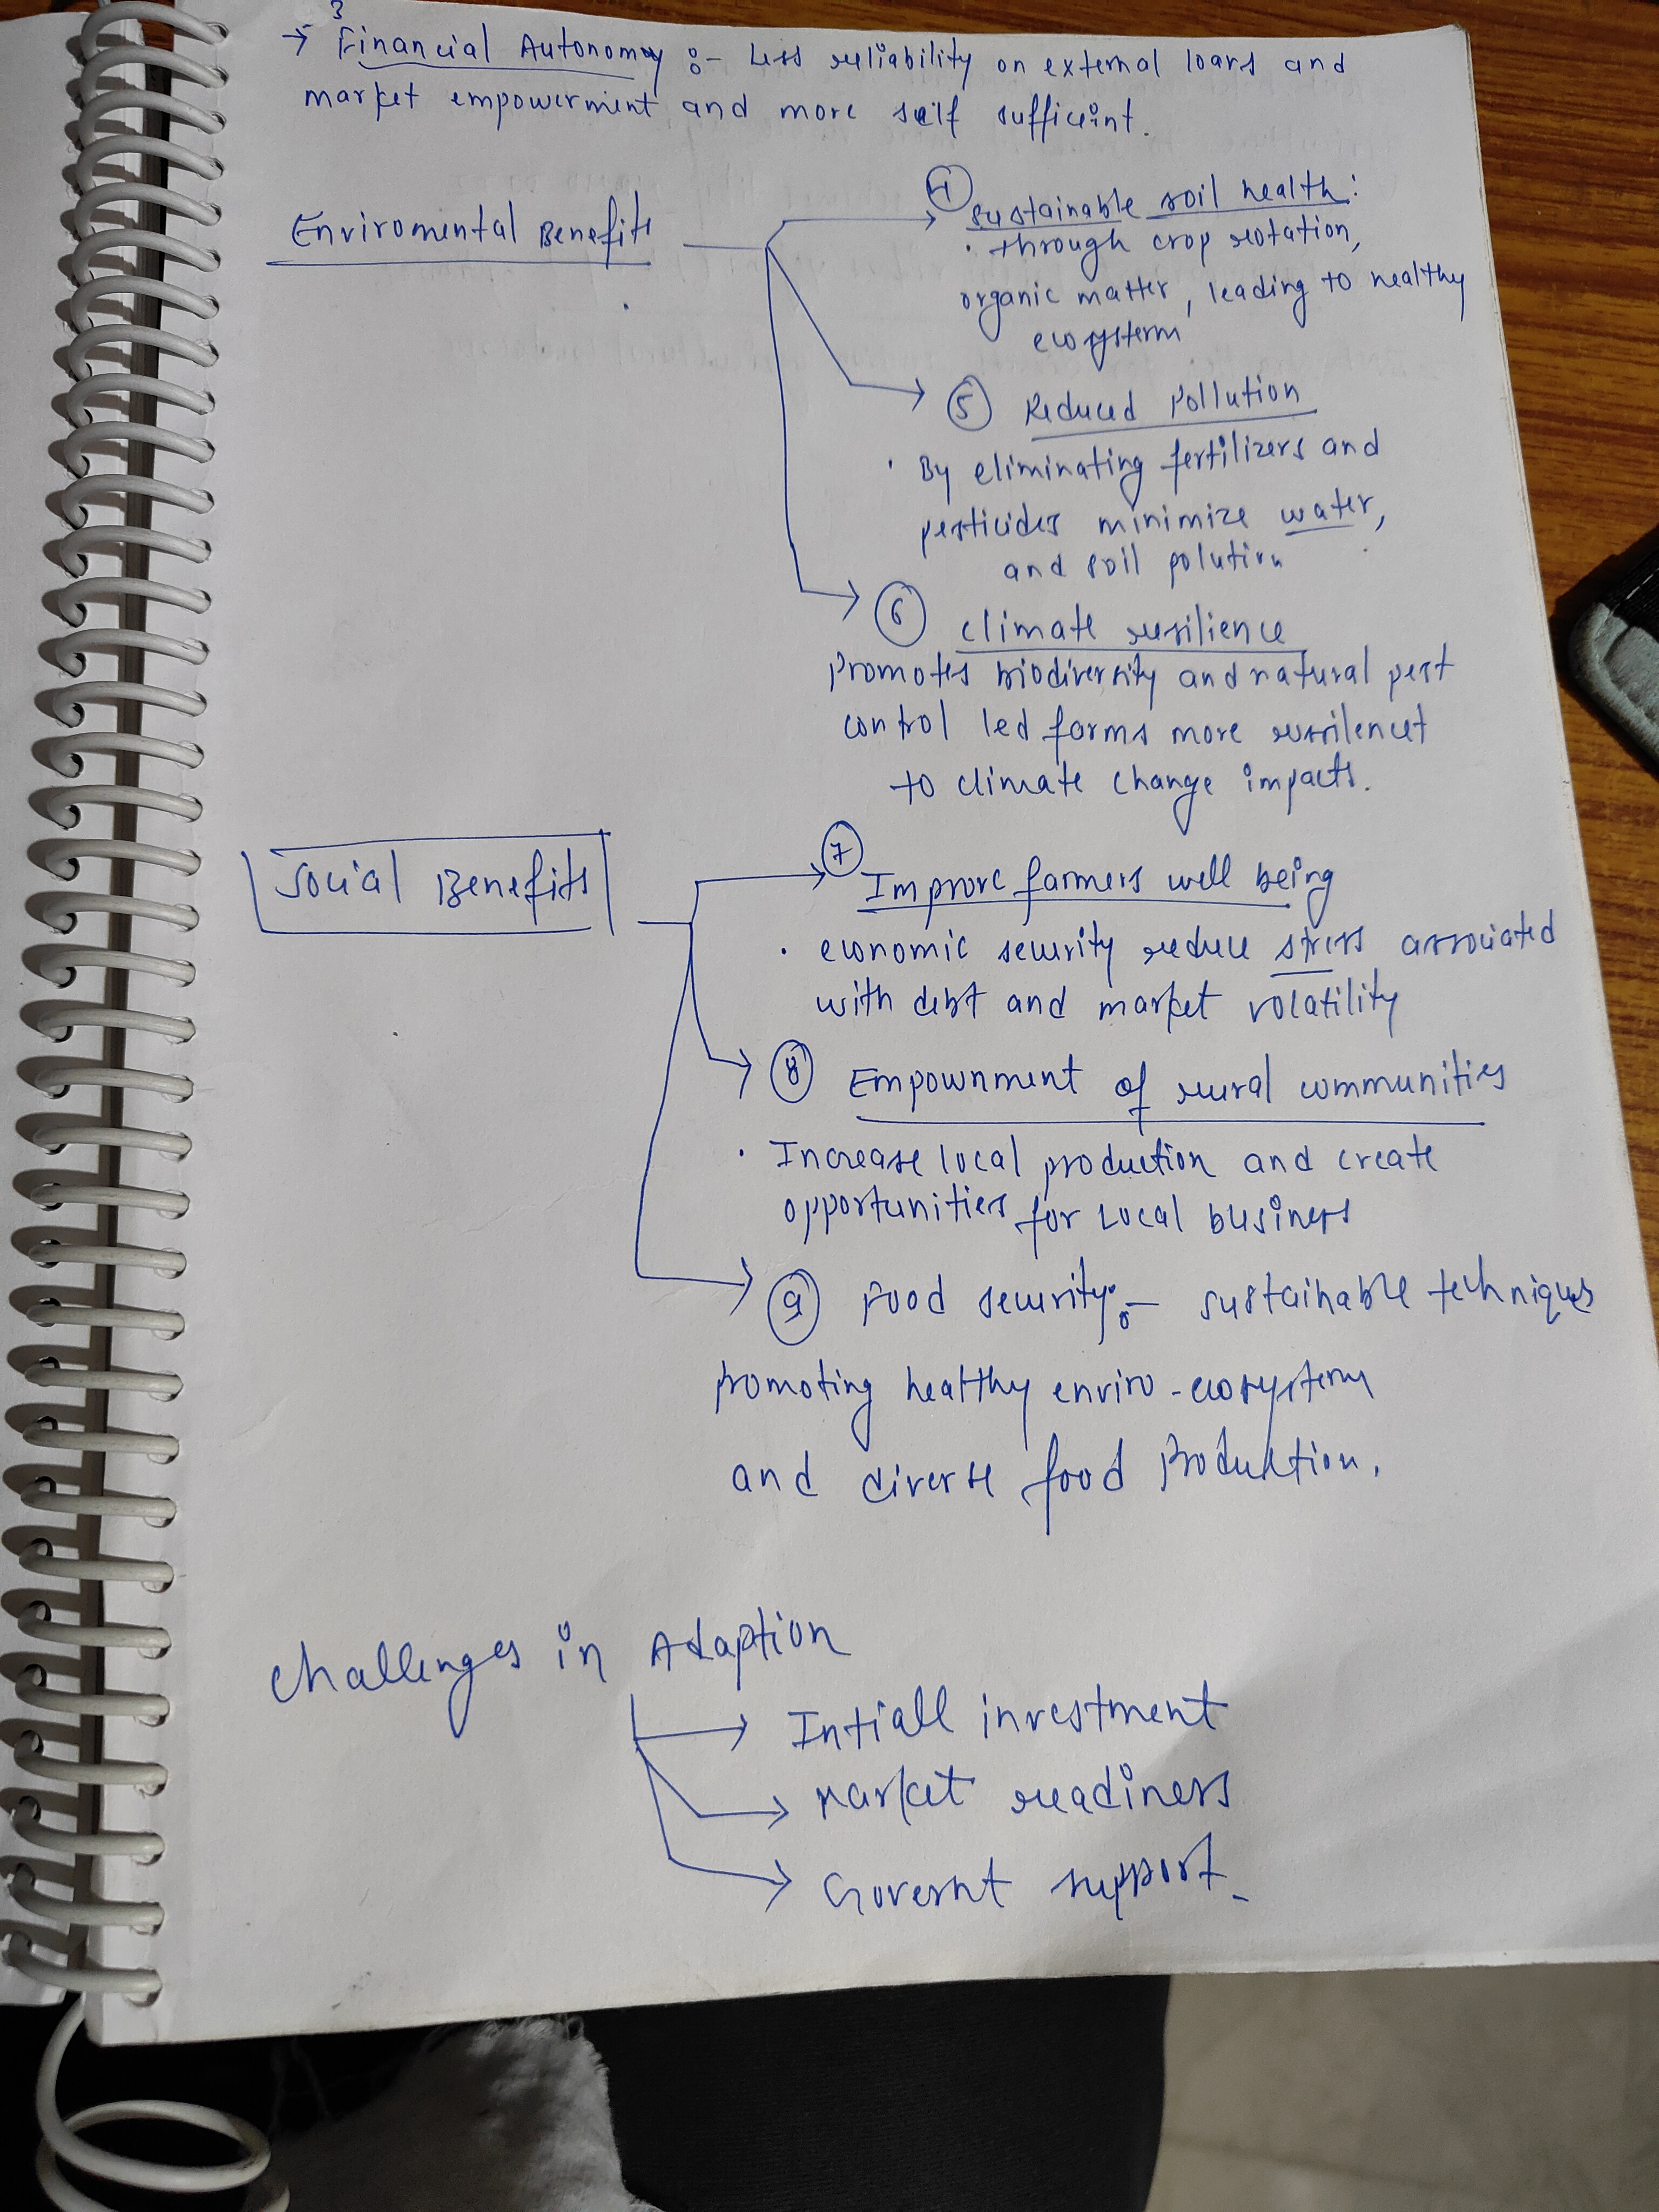 3
→ Financial Autonomy :- Less reliability on external loans and
market empowerment and more self sufficient.
Enviromental Benefits
④ sustainable soil health:
· through crop rotation,
organic matter, leading to healthy
ecosysterm
⑤ Reduced Pollution
· By eliminating fertilizers and
pesticides minimize water,
and soil polution
⑥ climate resilience
Promotes biodiversity and natural pest
control led farms more
to climate change impacts.
Social Benefits
⑦ Improve farmers well being
· economic security reduce stress associated
with debt and market volatility
⑧ Empownment of rural communities
· Increase local production and create
opportunities for Local business
⑨ Food security:- sustainable techniques
promoting healthy enviro-ecosysterm
and diverse food Production.
challenges in Adaption
→ Intiall investment
→ Market readiness
→ Governt support